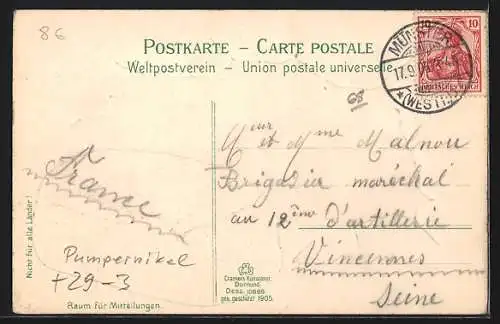 86
POSTKARTE – CARTE POSTALE
Weltpostverein – Union postale universelle
10
DEUTSCHES REICH
MÜNSTER
17.9.
*(WESTF.)
68
Mme Malnou
Brigadier maréchal
au 12ème d'artillerie
Vincennes
Seine
France
Nicht für alle Länder!
Pumpernikel
+29-3
Raum für Mitteilungen.
Dortmund.
Dess. 10696
ges. geschützt 1905.